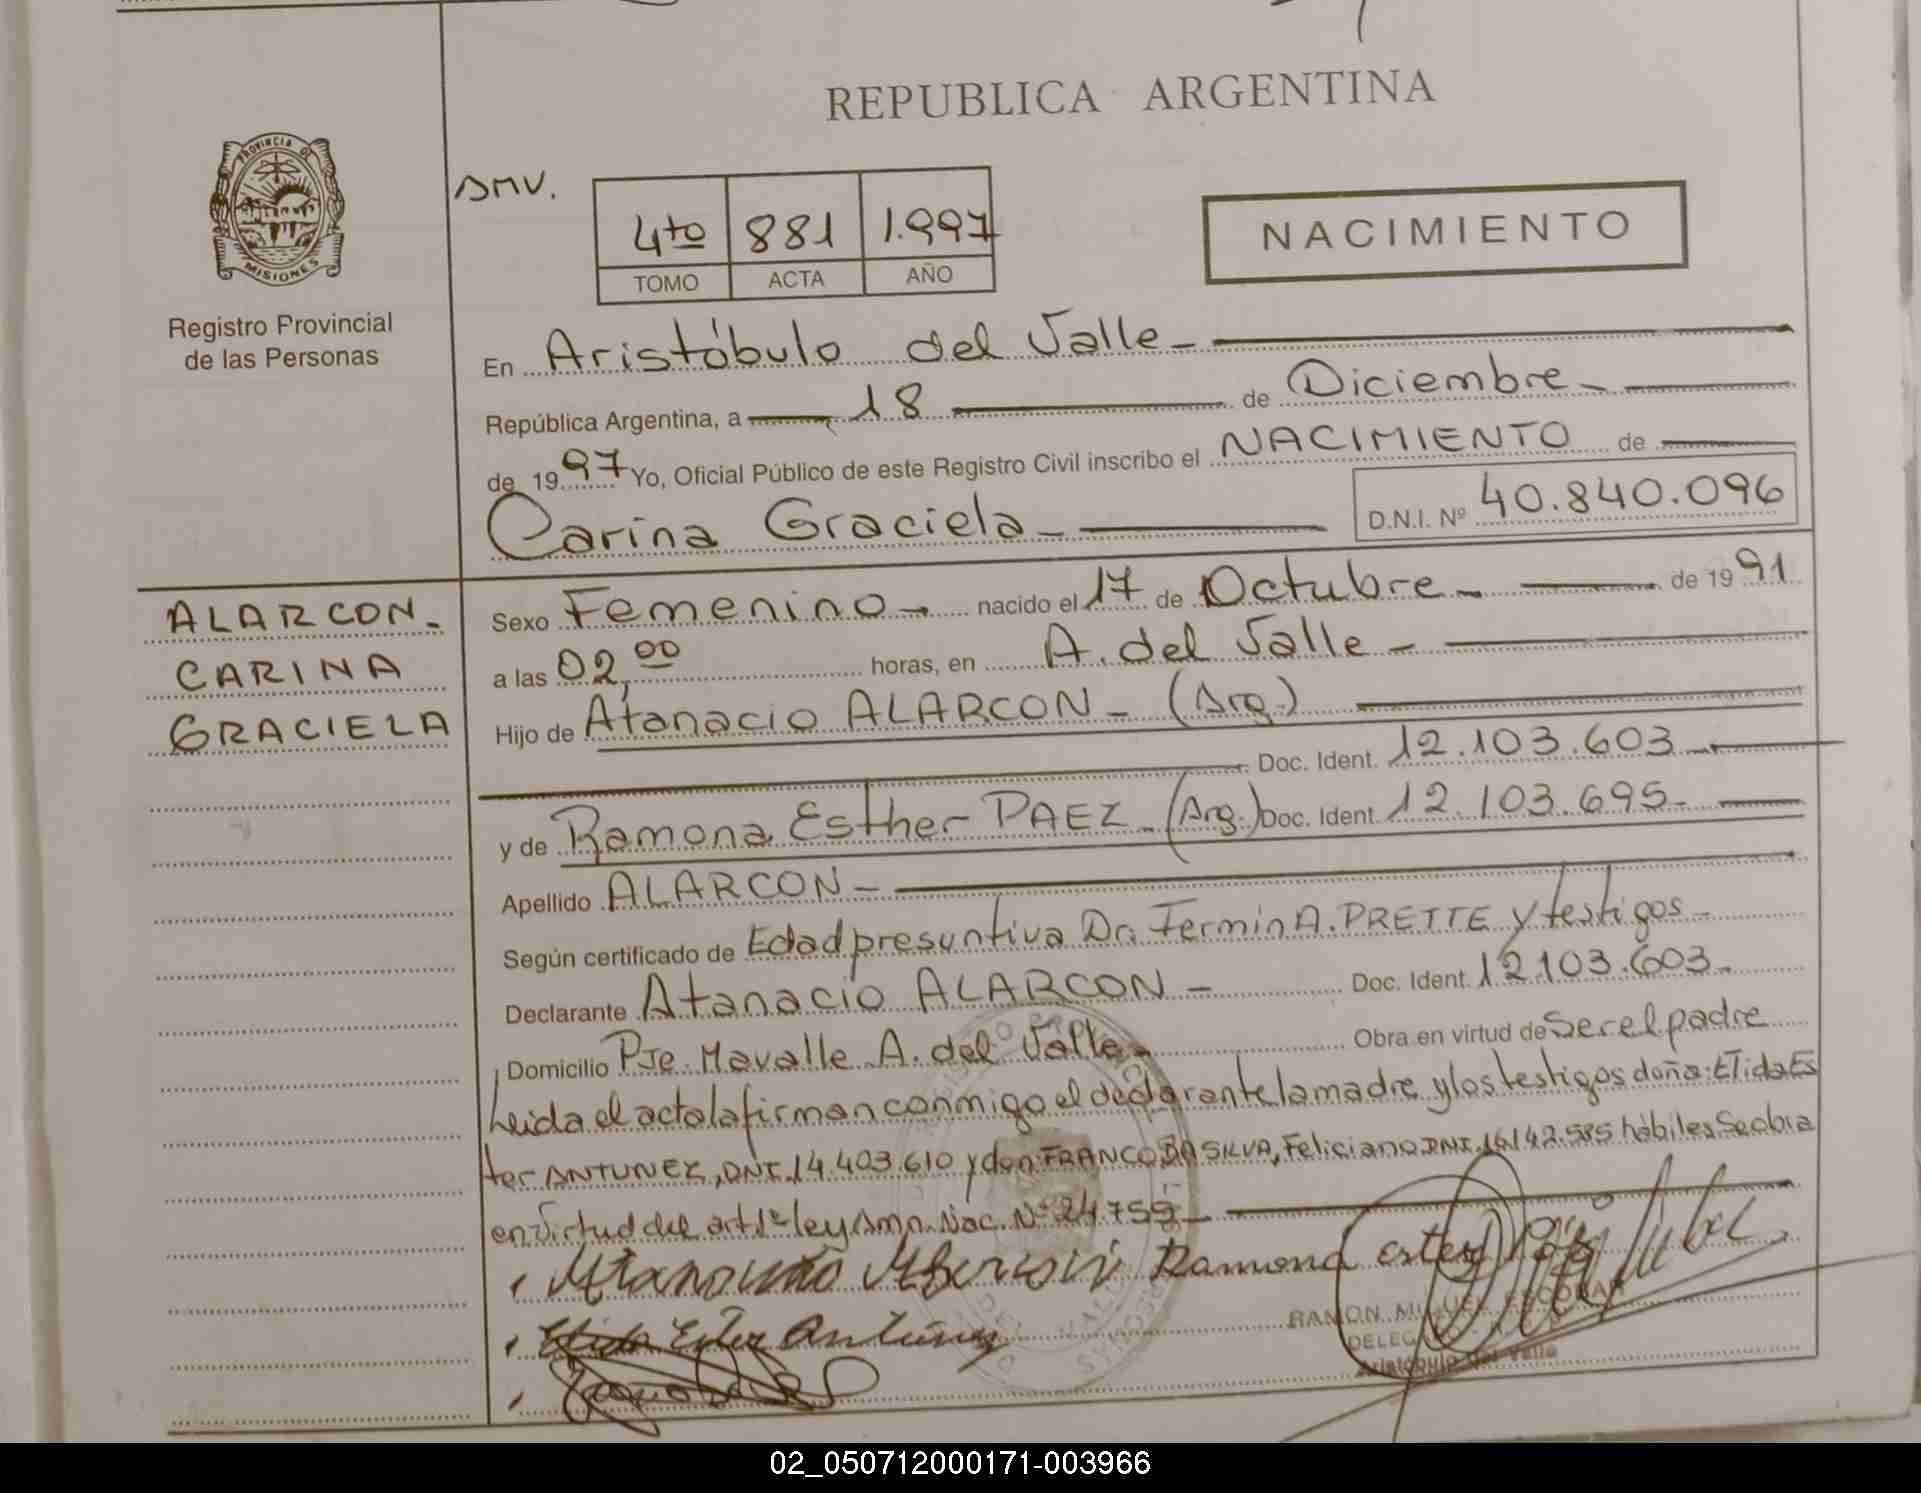 REPUBLICA ARGENTINA
PROVINCIA DE
MISIONES
Registro Provincial
de las Personas
SMV.
4to 881 1.997
TOMO ACTA AÑO
NACIMIENTO
En Aristóbulo del Valle -
República Argentina, a 18 de Diciembre -
de 1997 Yo, Oficial Público de este Registro Civil inscribo el NACIMIENTO de
Carina Graciela - D.N.I. Nº 40.840.096
ALARCON -
CARINA
GRACIELA
Sexo Femenino - nacido el 17 de Octubre - de 1991
a las 02,00 horas, en A. del Valle -
Hijo de Atanacio ALARCON - (Arg.)
Doc. Ident. 12.103.603 -
y de Ramona Esther PAEZ - (Arg.) Doc. Ident. 12.103.695 -
Apellido ALARCON -
Según certificado de Edad presuntiva Dr. Fermin A. PRETTE y testigos -
Declarante Atanacio ALARCON - Doc. Ident. 12103.603 -
Domicilio Pje. Mavalle A. del Valle - Obra en virtud de Ser el padre
Leida el acta la firman conmigo el declarante la madre y los testigos doña: Elida Es
ter ANTUNEZ, DNI. 14.403.610 y don FRANCO DA SILVA, Feliciano DNI. 16.142.585 hábiles Se obra
en virtud del art 1º ley Amn. Nac. Nº 24.755 -
Atanacio Alarcon Ramona ester
RAMON MIGUEL ESCOBAR
Elida Ester Antunez
Aristóbulo Del Valle
02_050712000171-003966